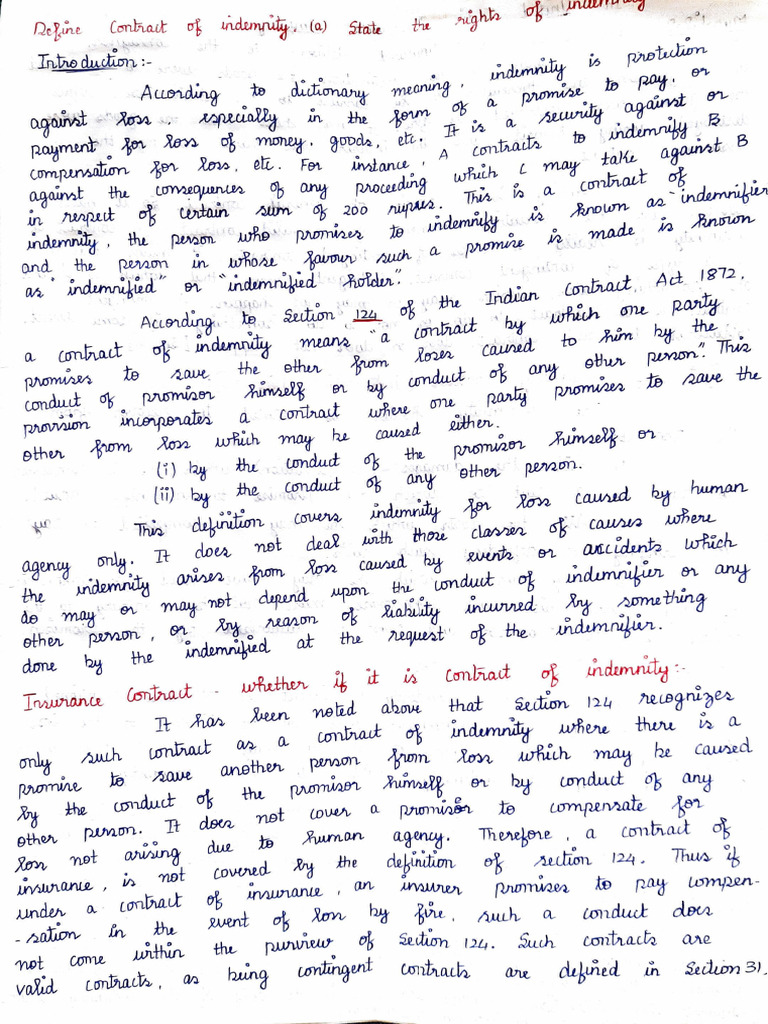 Define Contract of indemnity. (a) State the rights of indemnity
Introduction:-
According to dictionary meaning, indemnity is protection
against loss especially in the form of a promise to pay, or
payment for loss of money, goods, etc. It is a security against or
compensation for loss, etc. For instance, A contracts to indemnify B
against the consequences of any proceeding which C may take against B
in respect of certain sum of 200 rupees. This is a contract of
indemnity, the person who promises to indemnify is known as "indemnifier
and the person in whose favour such a promise is made is known
as "indemnified" or "indemnified holder".
According to Section 124 of the Indian Contract Act 1872,
a contract of indemnity means "a contract by which one party
promises to save the other from loses caused to him by the
conduct of promisor himself or by conduct of any other person". This
provision incorporates a contract where one party promises to save the
other from loss which may be caused either.
(i) by the conduct of the promisor himself or
(ii) by the conduct of any other person.
This definition covers indemnity for loss caused by human
agency only. It does not deal with those classes of causes where
the indemnity arises from loss caused by events or accidents which
do may or may not depend upon the conduct of indemnifier or any
other person, or by reason of liability incurred by something
done by the indemnified at the request of the indemnifier.
Insurance Contract - whether if it is contract of indemnity:-
It has been noted above that Section 124 recognizes
only such contract as a contract of indemnity where there is a
promise to save another person from loss which may be caused
by the conduct of the promisor himself or by conduct of any
other person. It does not cover a promisor to compensate for
loss not arising due to human agency. Therefore, a contract of
insurance, is not covered by the definition of section 124. Thus if
under a contract of insurance, an insurer promises to pay compen-
-sation in the event of loss by fire, such a conduct does
not come within the purview of Section 124. Such contracts are
valid contracts, as being contingent contracts are defined in Section 31.